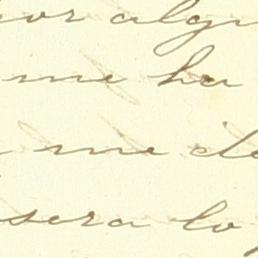 por algu
me ha
me de
sera lo